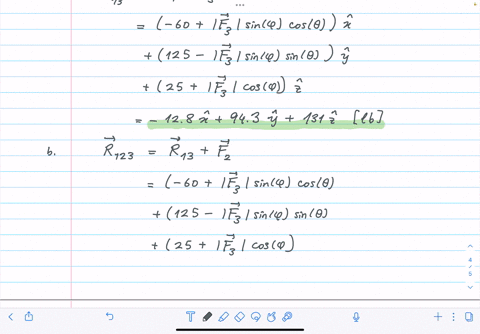 = (-60 + |F⃗₃| sin(φ) cos(θ)) x̂
+ (125 - |F⃗₃| sin(φ) sin(θ)) ŷ
+ (25 + |F⃗₃| cos(φ)) ẑ
= - 12.8 x̂ + 94.3 ŷ + 131 ẑ [lb]
b. R⃗₁₂₃ = R⃗₁₃ + F⃗₂
= (-60 + |F⃗₃| sin(φ) cos(θ)
+ (125 - |F⃗₃| sin(φ) sin(θ)
+ (25 + |F⃗₃| cos(φ)
4
5